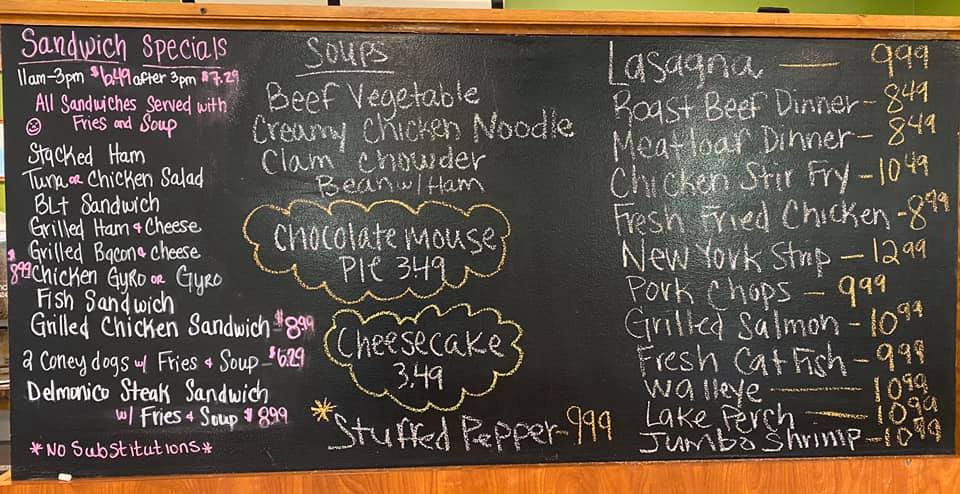 Sandwich Specials
11am-3pm $6.49 after 3pm $7.29
All Sandwiches Served with
Fries and Soup
Stacked Ham
Tuna or Chicken Salad
BLt Sandwich
Grilled Ham & Cheese
Grilled Bacon & cheese
$8.99 Chicken Gyro or Gyro
Fish Sandwich
Grilled Chicken Sandwich - $8.99
2 Coney dogs w/ Fries & Soup - $6.29
Delmonico Steak Sandwich
w/ Fries & Soup $8.99
*No Substitutions*
Soups
Beef Vegetable
Creamy Chicken Noodle
Clam chowder
Bean w/ Ham
Chocolate mouse
PIE 3.49
Cheesecake
3.49
*Stuffed Pepper - 9.99
Lasagna — 9.99
Roast Beef Dinner - 8.49
Meatloaf Dinner - 8.49
Chicken Stir Fry - 10.49
Fresh Fried Chicken - 8.99
New York Strip - 12.99
Pork Chops - 9.99
Grilled Salmon - 10.99
Fresh Cat Fish - 9.99
walleye — 10.99
Lake Perch — 10.99
Jumbo Shrimp - 10.99